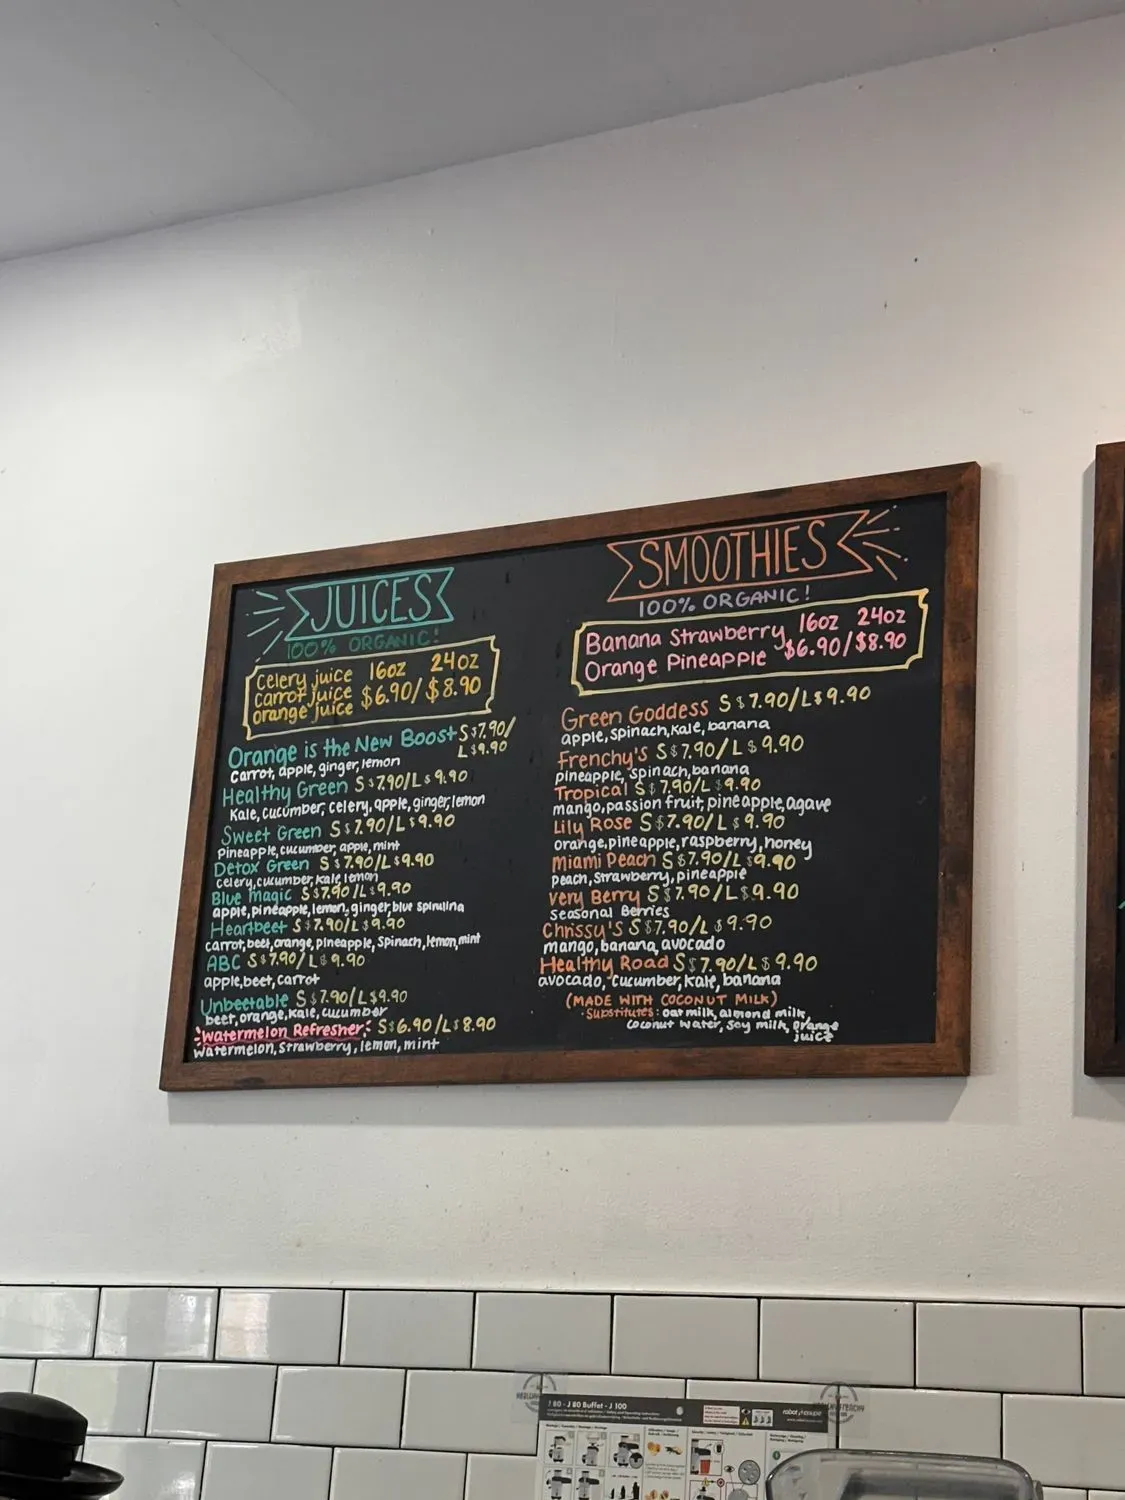 JUICES
100% ORGANIC!
Celery juice 16oz 24oz
carrot juice $6.90/$8.90
orange juice
Orange is the New Boost S$7.90/
L$9.90
carrot, apple, ginger, lemon
Healthy Green S$7.90/L$9.90
Kale, cucumber, celery, apple, ginger, lemon
Sweet Green S$7.90/L$9.90
Pineapple, cucumber, apple, mint
Detox Green S$7.90/L$9.90
celery, cucumber, kale, lemon
Blue Magic S$7.90/L$9.90
apple, pineapple, lemon, ginger, blue spirulina
Heartbeet S$7.90/L$9.90
carrot, beet, orange, pineapple, spinach, lemon, mint
ABC S$7.90/L$9.90
apple, beet, carrot
Unbeetable S$7.90/L$9.90
beet, orange, kale, cucumber
Watermelon Refresher: S$6.90/L$8.90
watermelon, strawberry, lemon, mint
SMOOTHIES
100% ORGANIC!
Banana Strawberry 16oz 24oz
Orange Pineapple $6.90/$8.90
Green Goddess S$7.90/L$9.90
apple, spinach, kale, banana
Frenchy's S$7.90/L$9.90
pineapple, spinach, banana
Tropical S$7.90/L$9.90
mango, passion fruit, pineapple, agave
Lily Rose S$7.90/L$9.90
orange, pineapple, raspberry, honey
Miami Peach S$7.90/L$9.90
peach, strawberry, pineapple
Very Berry S$7.90/L$9.90
seasonal Berries
Chrissy's S$7.90/L$9.90
mango, banana, avocado
Healthy Road S$7.90/L$9.90
avocado, cucumber, kale, banana
(MADE WITH COCONUT MILK)
·Substitutes: oat milk, almond milk,
coconut water, soy milk, orange
juice
J 80 - J 80 Buffet - J 100
robot coupe